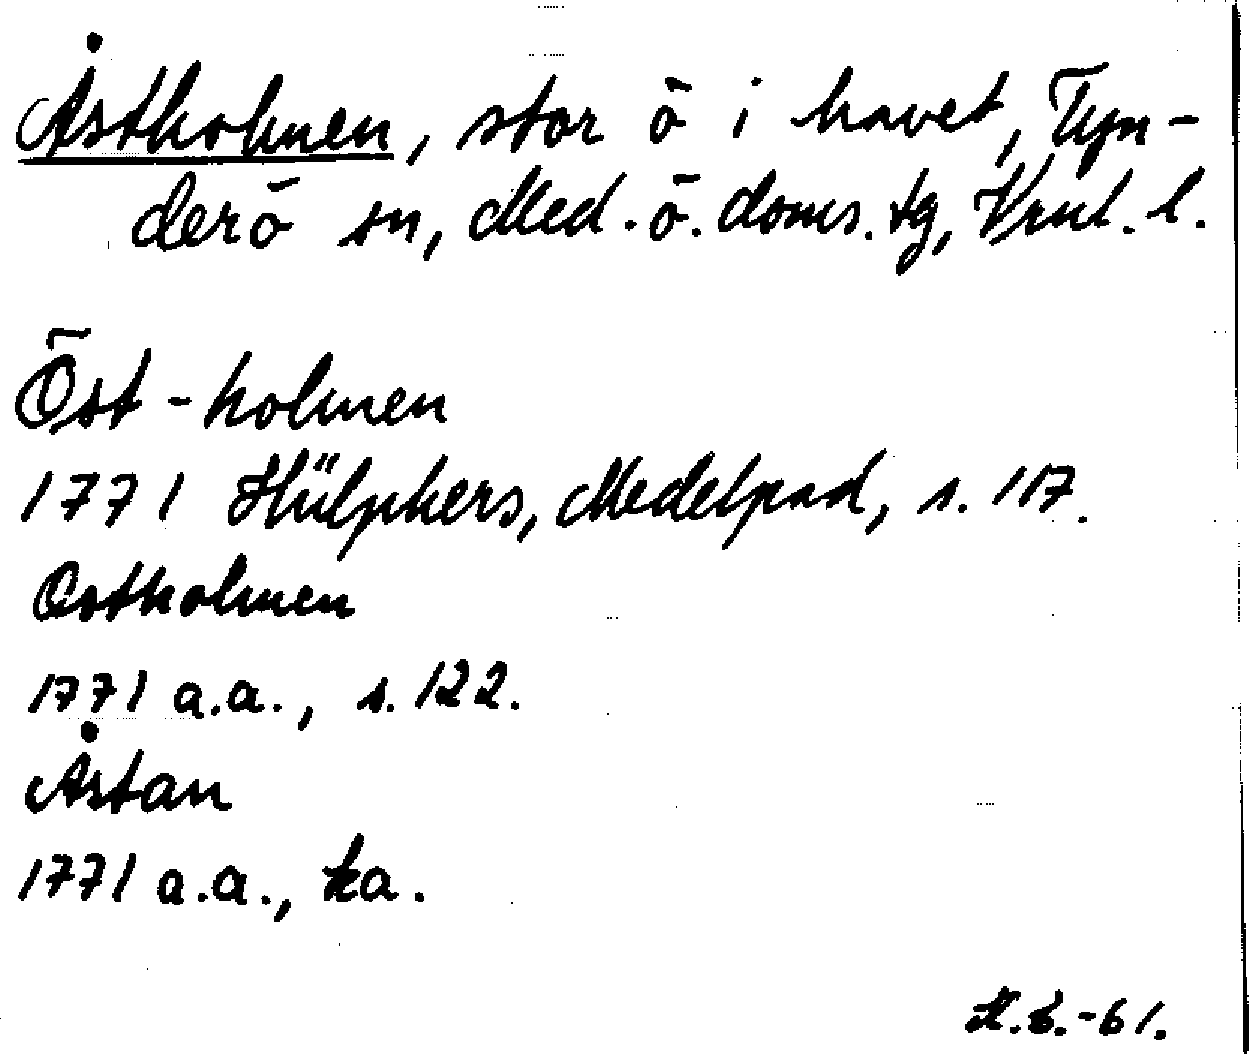 Åstholmen, stor ö i havet, Tyn-
derö sn, Med. ö. doms. tg, Vrnl. l.
Öst-holmen
1771 Hülphers, Medelpad, s. 117.
Ostholmen
1771 a.a., s. 122.
Åstan
1771 a.a., ka.
-61.